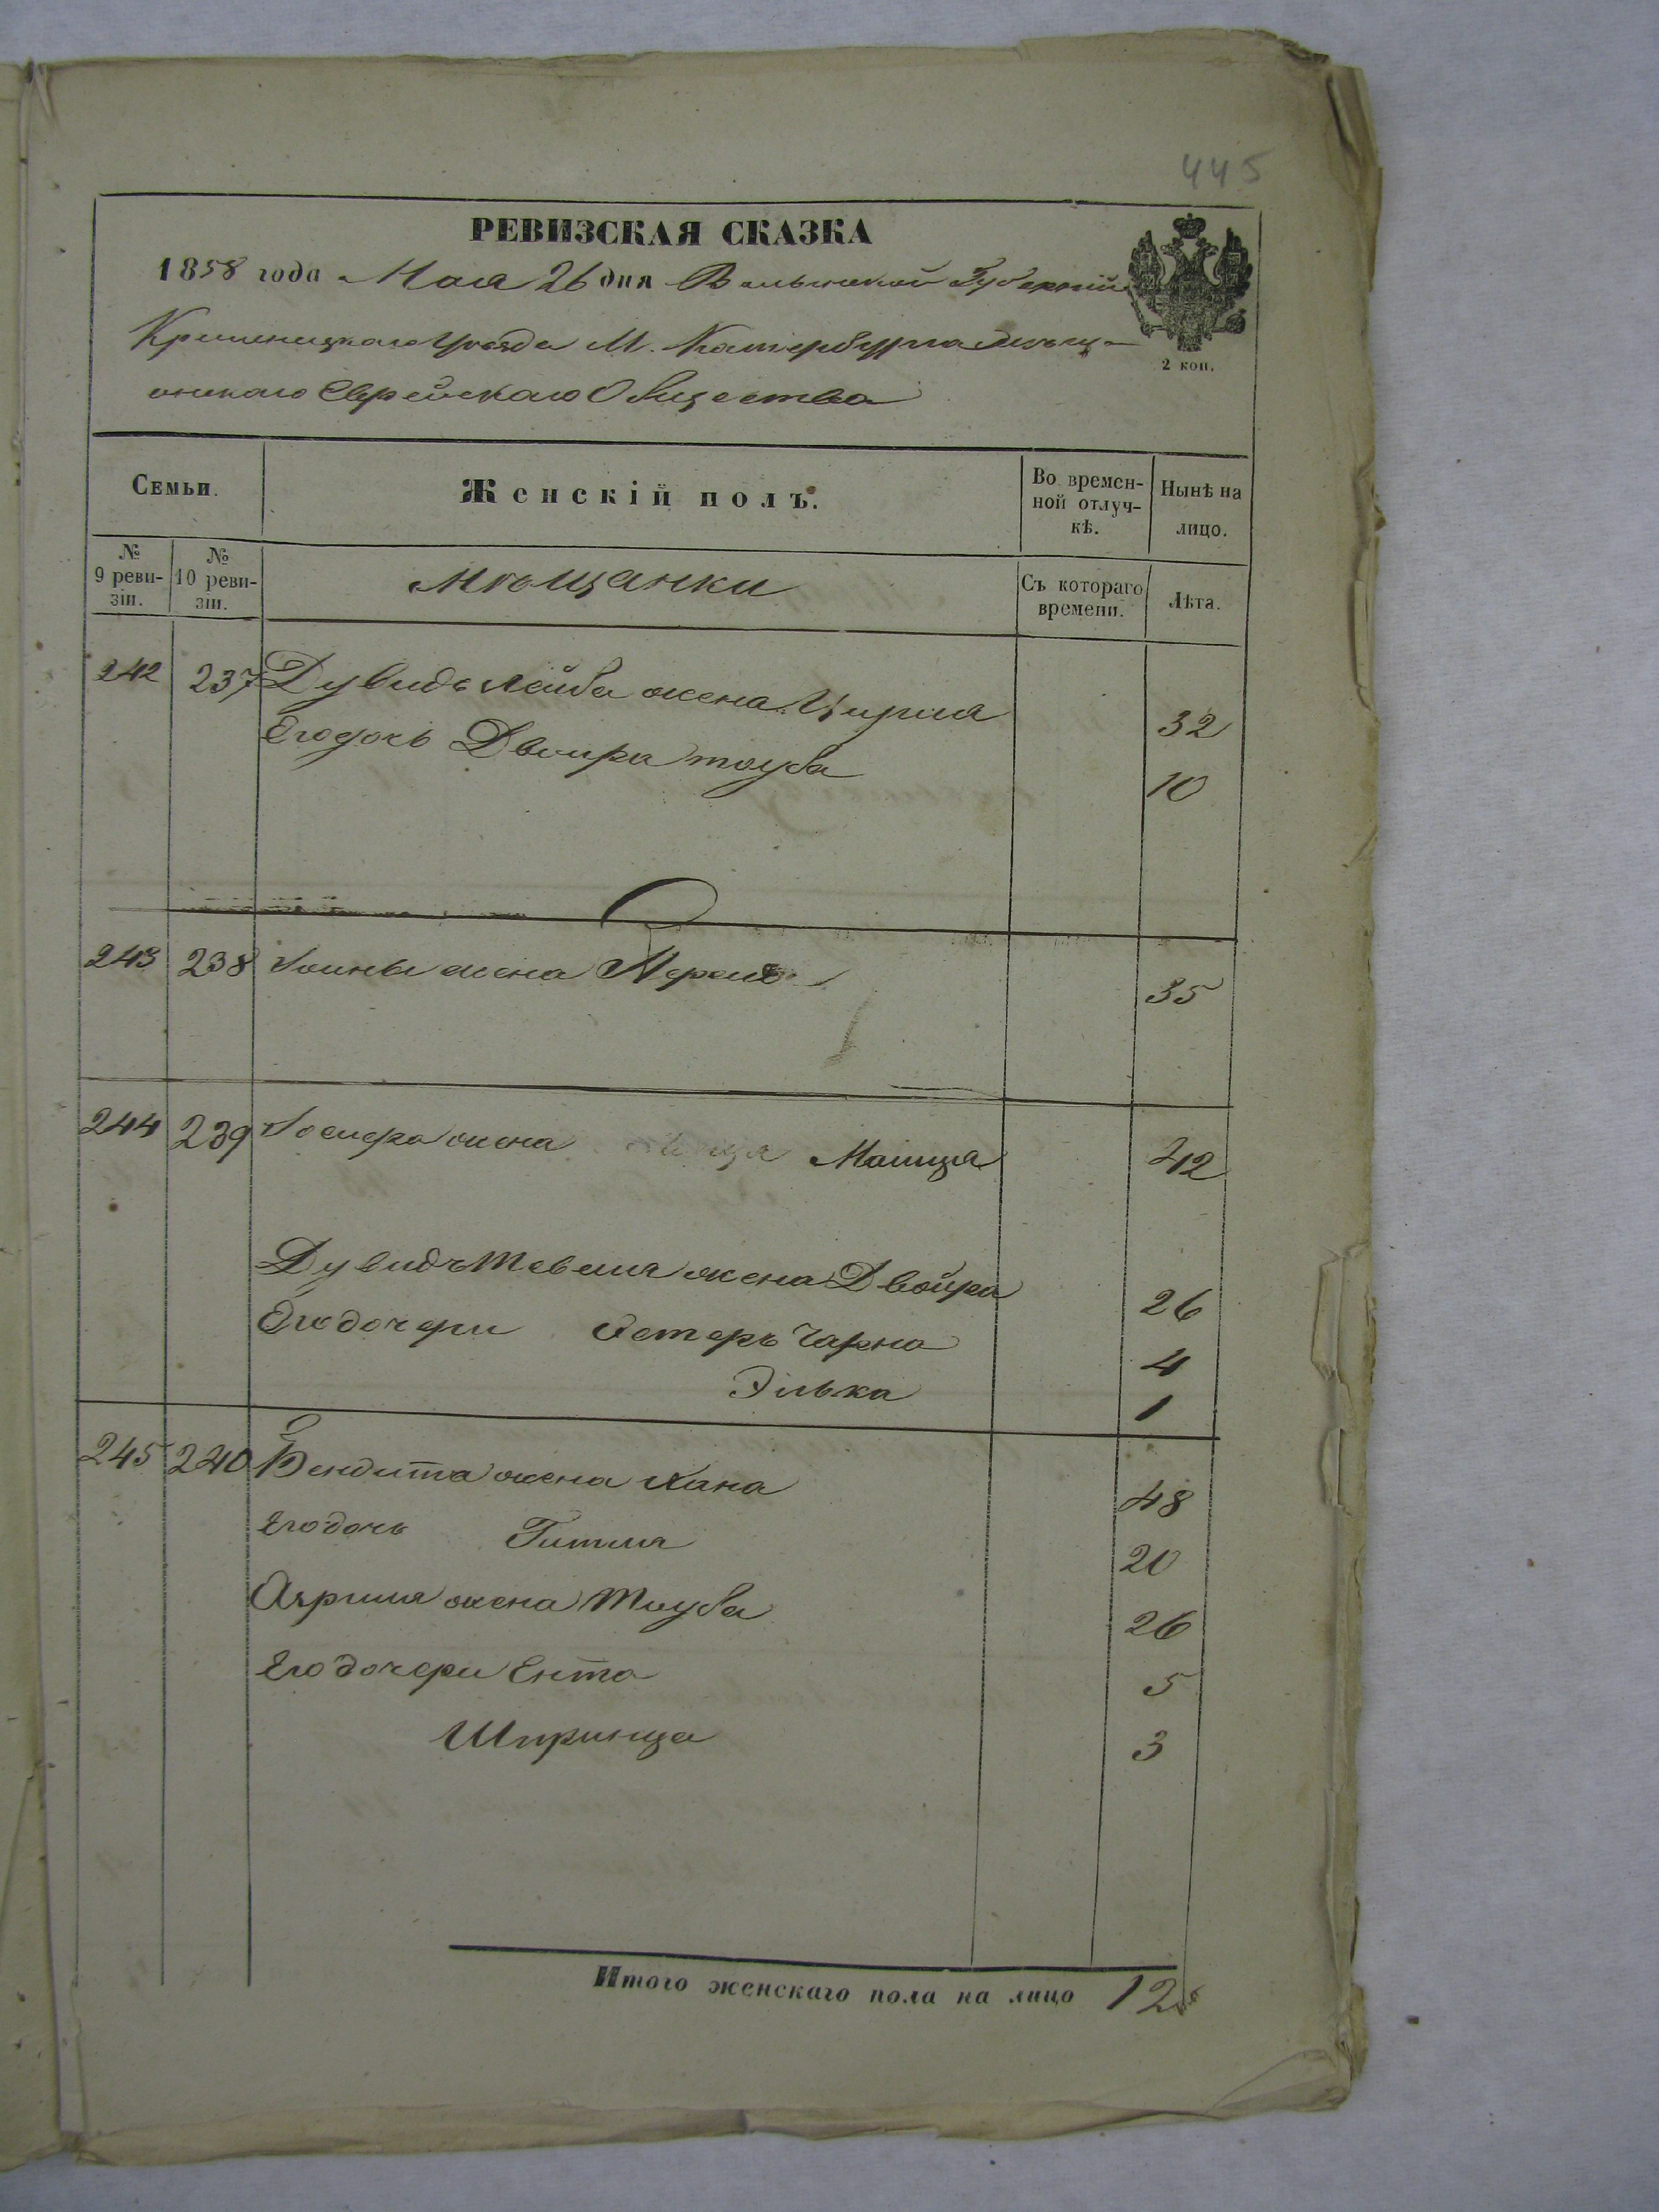 445
РЕВИЗСКАЯ СКАЗКА
1858 года Мая 26 дня Волынской Губернiи
Кременецкаго уѣзда М. Катербурга мѣщ-
анскаго Еврейскаго Общества
2 коп.
Семьи. Женскій полъ. Во времен-ной отлуч-кѣ. Нынѣ на лицо.
№ 9 реви-зіи. № 10 реви-зіи. Мѣщанки Съ котораго времени. Лѣта.
242 237 Дувидъ Лейба жена Цирля 32
Его дочь Двойра тауба 10
243 238 жена 35
244 239 жена Маища 42
Дувидъ Тевеля жена Двойра 26
Его дочери Эстеръ Чарна 4
Элька 1
245 240 Бендита жена Хана 48
Его дочь Гитля 20
жена Тауба 26
Его дочери Ента 5
Шпринца 3
Итого женскаго пола на лицо 12